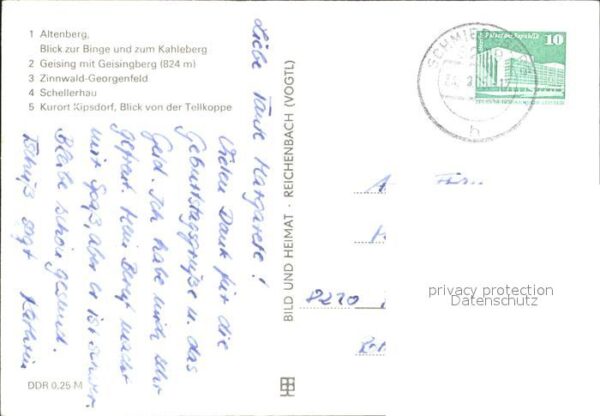 1 Altenberg,
Blick zur Binge und zum Kahleberg
2 Geising mit Geisingberg (824 m)
3 Zinnwald-Georgenfeld
4 Schellerhau
5 Kurort Kipsdorf, Blick von der Tellkoppe
Liebe Tante Margarete!
Vielen Dank für die
Geburtstagsgrüße u. das
Geld. Ich habe mich sehr
gefreut. Mein Beruf macht
mir Spaß, aber er ist schwer.
Bleibe schön gesund.
Tschüß sagt Kathrin
BILD UND HEIMAT · REICHENBACH (VOGTL)
DDR 0,25 M
Palast der Republik
10
SCHMIEDEBERG
h
8210
privacy protection
Datenschutz